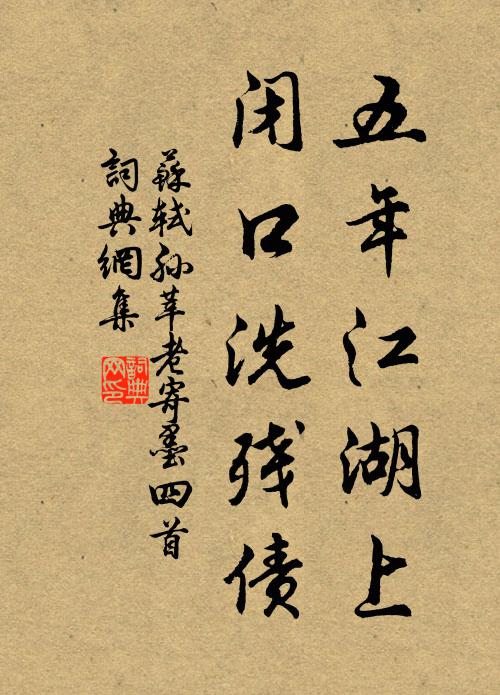 五年江湖上
闭口洗残债
蘇軾孙莘老寄墨四首
詞典網集
詞典
网印